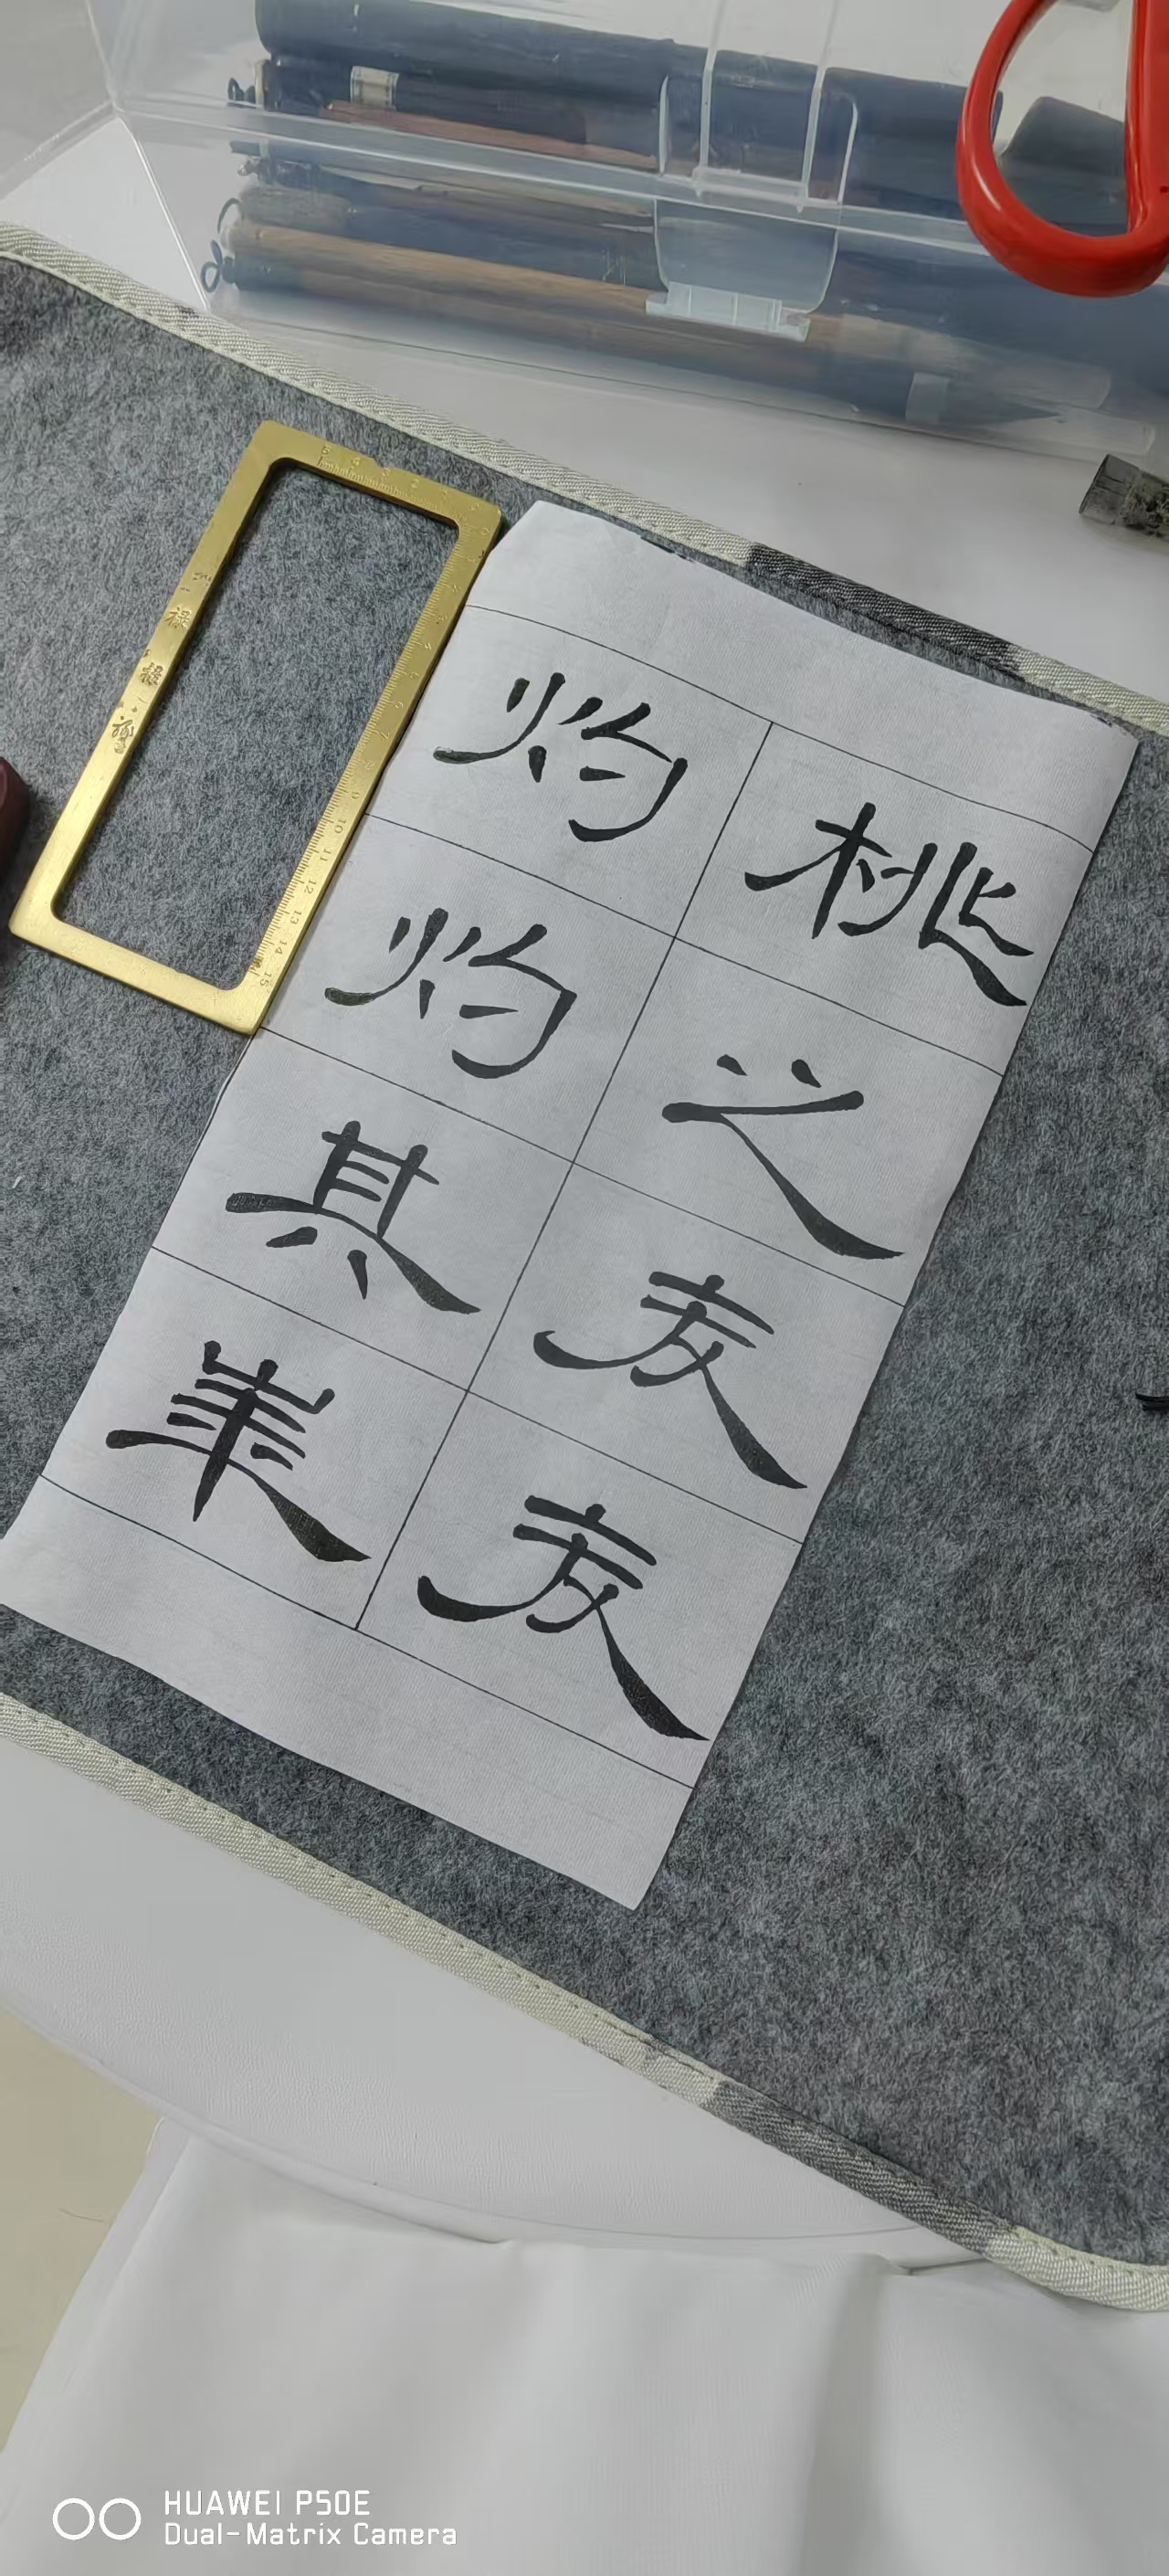 桃之夭夭
灼灼其華
HUAWEI P50E
Dual-Matrix Camera